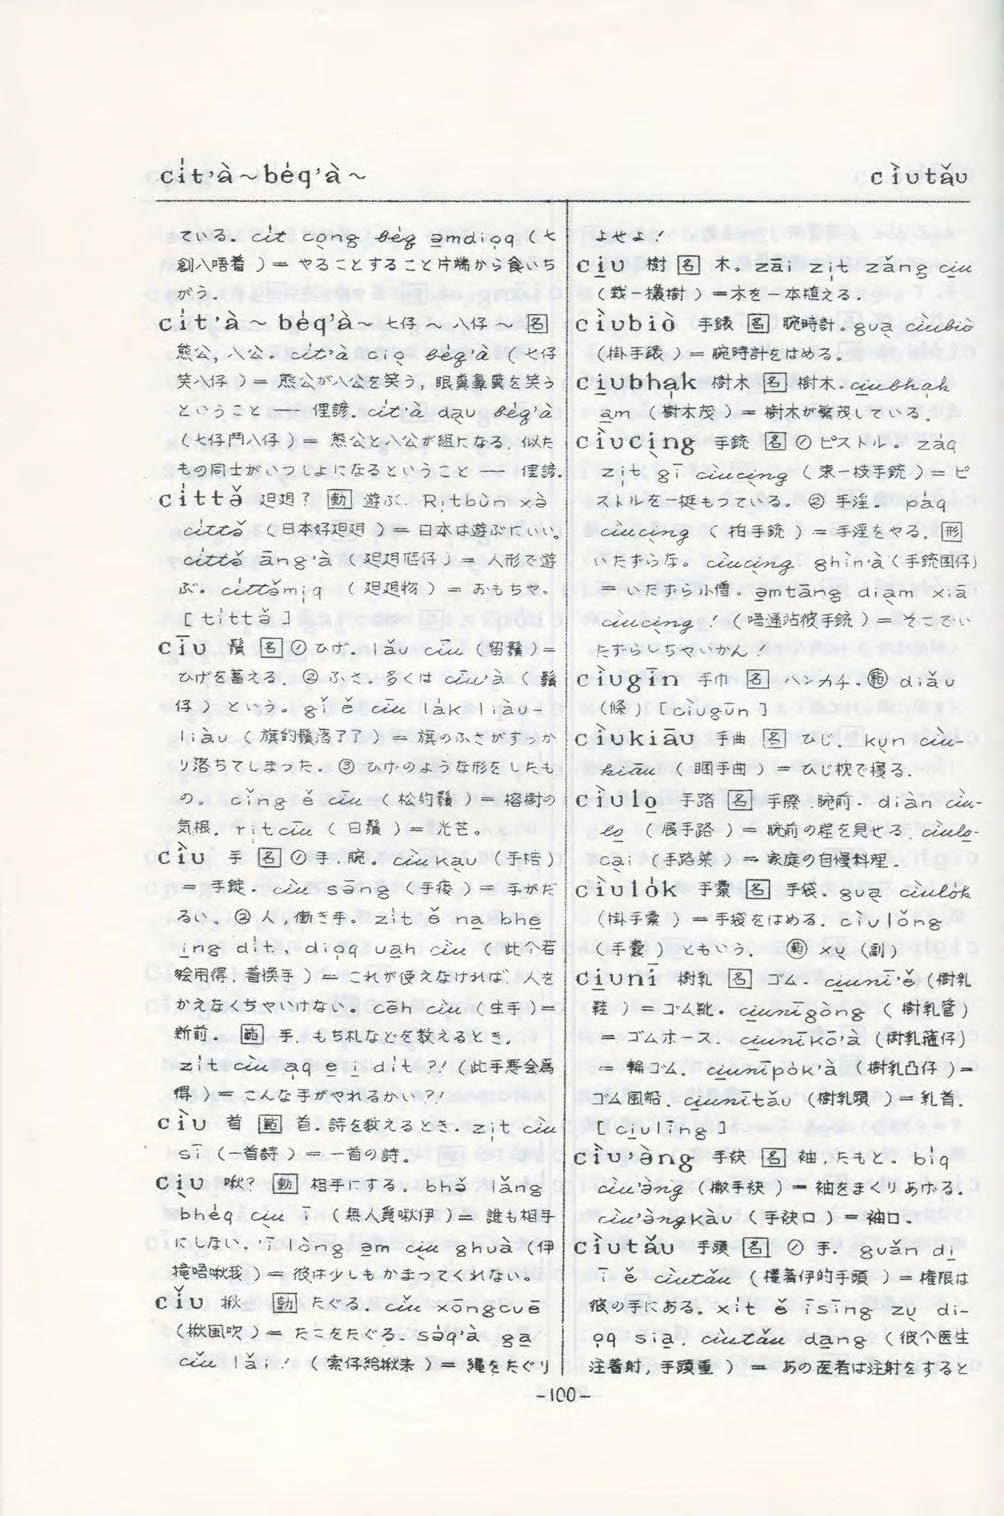 cit'à～béq'à～
cìutǎu
ている。cit cong béq əmdioq (七
創八唔着)＝やることすること片端から食いち
がう.
cít'à～béq'à～ 七仔～八仔～ 名
熊公,八公. cít'à cio béq'à (七仔
笑八仔)＝熊公が八公を笑う,眼糞鼻糞を笑う
ということ ── 俚諺. cít'à dau béq'à
(七仔鬥八仔)＝熊公と八公が組になる. 似た
もの同士がいつしよになるということ ── 俚諺.
cíttə̌ 𨑨迌? 動 遊ぶ. Ritbùn xà
cíttə̌ (日本好𨑨迌)＝日本は遊ぶにいい。
cíttə̌ āng'à (𨑨迌尪仔)＝人形で遊
ぶ. cíttə̌miq (𨑨迌物)＝おもちゃ.
[títtə̌]
cīu 鬚 名 ①ひげ. lǎu cīu (留鬚)＝
ひげを蓄える. ②ふさ. 多くは cīu'à (鬚
仔)という。gǐ ě cīu lák liàu-
liàu (旗的鬚落了了)＝旗のふさがすっか
り落ちてしまった. ③ひげのような形をしたも
の。cǐng ě cīu (松的鬚)＝榕樹の
気根. ritcīu (日鬚)＝光芒。
cìu 手 名 ①手.腕。cìukau (手梏)
＝手錠. cìu səng (手痠)＝手がだ
るい。②人,働き手。zit ě na bhe
ing dit, dioq uah cìu (此个若
𣍐用得,着換手)＝これが使えなければ,人を
かえなくちゃいけない。cēh cìu (生手)＝
新前. 範 手.もち札などを数えるとき.
zit cìu aq e i dit?! (此手悪会為
得)＝こんな手がやれるかい?!
cìu 首 範 首.詩を数えるとき. zit cìu
sī (一首詩)＝一首の詩。
ciu 啾? 動 相手にする. bhə̌ lǎng
bhéq ciu ī (無人覓啾伊)＝誰も相手
にしない. 'ī lòng əm ciu ghuà (伊
攏唔啾我)＝彼は少しもかまってくれない。
cǐu 揪 動 たぐる. cǐu xōngcuē
(揪風吹)＝たこをたぐる. səq'à ga
cǐu lǎi! (索仔給揪来)＝縄をたぐり
よせよ!
ciu 樹 名 木。zāi zit zǎng ciu
(栽一欉樹)＝木を一本植える.
cìubiò 手錶 名 腕時計. gua cìubiò
(掛手錶)＝腕時計をはめる。
ciubhak 樹木 名 樹木. ciubhak
am (樹木茂)＝樹木が繁茂している.
cìucìng 手銃 名 ①ピストル. záq
zit gī cìucìng (束一枝手銃)＝ピ
ストルを一挺もつている。②手淫。páq
cìucìng (拍手銃)＝手淫をやる. 形
いたずらな。cìucìng ghìn'à (手銃囡仔)
＝いたずら小僧. əmtāng diam xiā
cìucìng! (唔通站彼手銃)＝そこでい
たずらしちやいかん!
cìugīn 手巾 名 ハンカチ. 範 diǎu
(條)[cìugūn]
cìukiāu 手曲 名 ひじ. kun cìu-
kiāu (睏手曲)＝ひじ枕で寝る.
cìulo 手路 名 手際.腕前. diàn cìu-
lo (展手路)＝腕前の程を見せる. cìulo-
cài (手路菜)＝家庭の自慢料理.
cìulók 手橐 名 手袋. gua cìulók
(掛手橐)＝手袋をはめる. cìulǒng
(手囊)ともいう. 範 xu (副)
ciunī 樹乳 名 ゴム. ciunī'ě (樹乳
鞋)＝ゴム靴. ciunīgòng (樹乳管)
＝ゴムホース. ciunīkō'à (樹乳箍仔)
＝輪ゴム. ciunīpòk'à (樹乳凸仔)＝
ゴム風船. ciunītǎu (樹乳頭)＝乳首.
[ciulīng]
cìu'ə̀ng 手䘼 名 袖,たもと. biq
cìu'ə̀ng (撇手䘼)＝袖をまくりあげる.
cìu'ə̀ngkàu (手䘼口)＝袖口.
cìutǎu 手頭 名 ①手. guán di
ī ě cìutǎu (權著伊的手頭)＝権限は
彼の手にある. xit ě īsīng zu di-
oq sia, cìutǎu dang (彼个医生
注着射,手頭重)＝あの医者は注射をすると
-100-